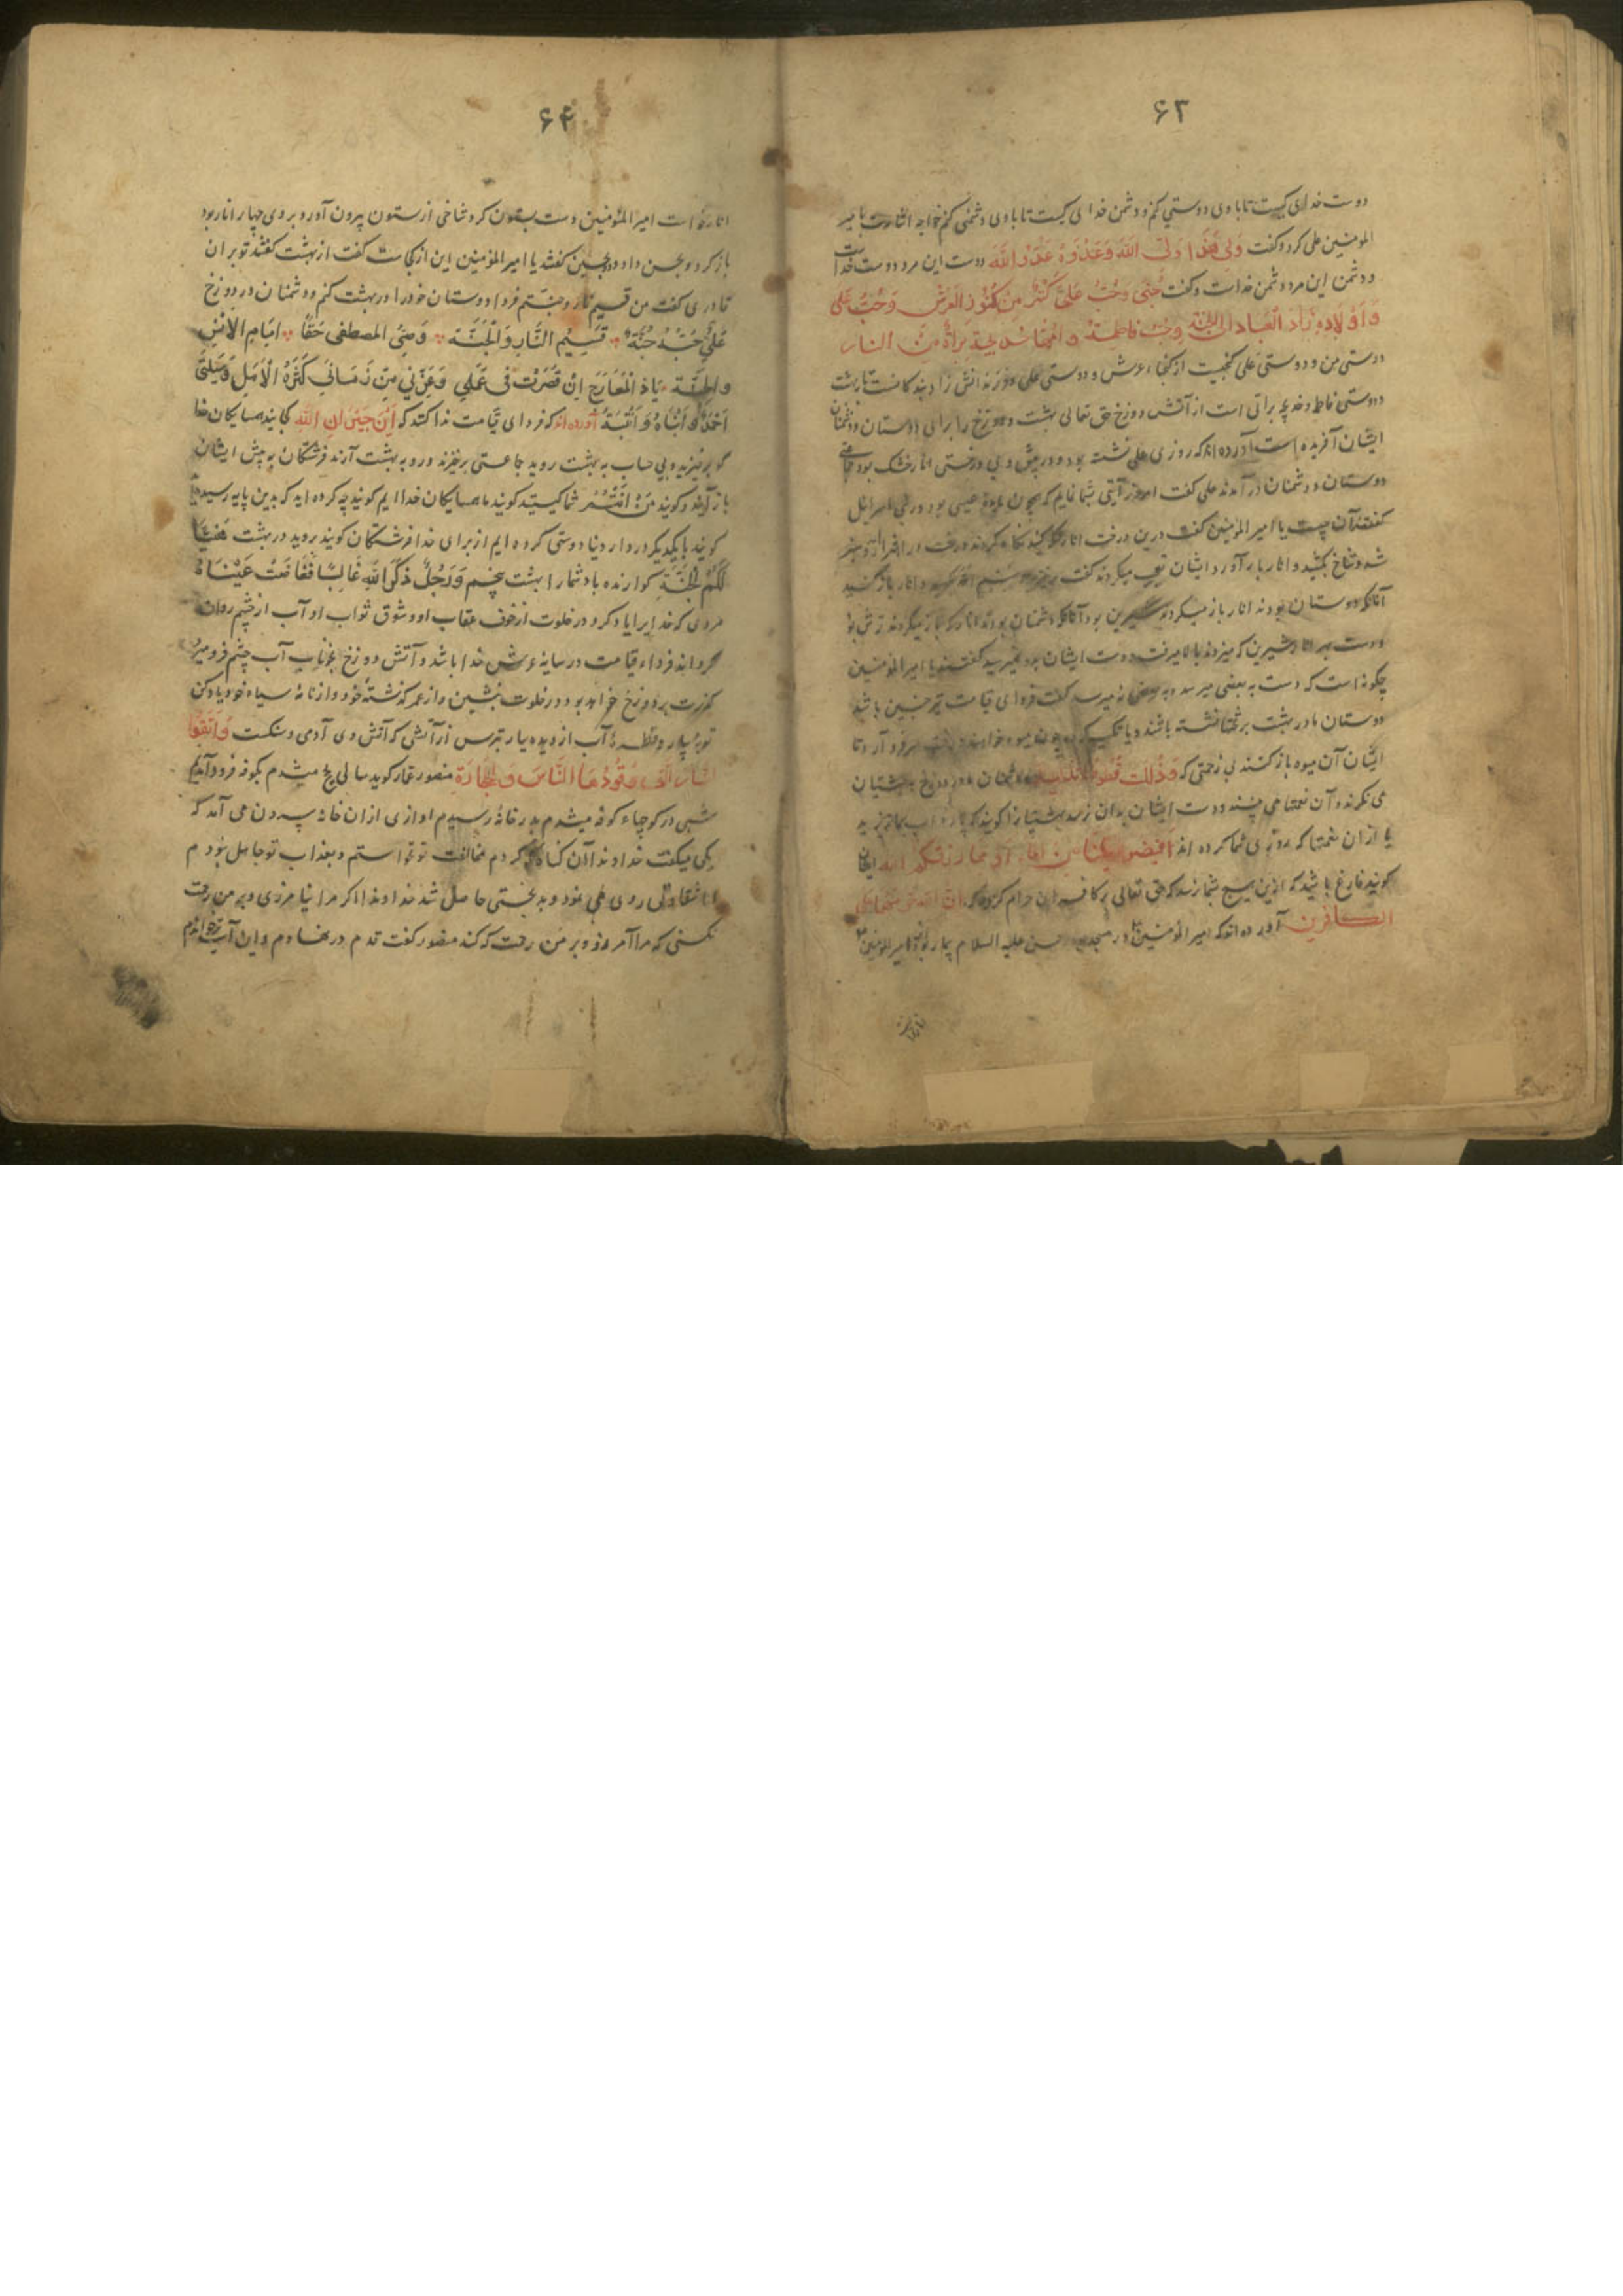 ۶۳
دوست خدای کیست تا با وی دوستی کنم و دشمن خدا کیست تا با وی دشمنی کنم خواجه اشارت بامیر
المومنین علی کرد و گفت وَلِیُّ هٰذَا وَلِیُّ اللّٰهِ وَعَدُوُّهُ عَدُوُّ اللّٰهِ دوست این مرد دوست خداست
و دشمن این مرد دشمن خداست و گفت حُبّی وَحُبُّ عَلِیٍّ کَنْزٌ مِنْ کُنُوزِ الْعَرْشِ وَحُبُّ عَلی
وَاَوْلَادِهِ زَادُ الْعِبَادِ اِلَی الْجَنَّةِ وَحُبُّ فَاطِمَةَ و خدیجة بَرَاءَةٌ مِنَ النار
دوستی من و دوستی علی گنجیست از گنجهاء عرش و دوستی علی و فرزندانش زاد بندگانست تا بهشت
و دوستی فاطمه و خدیجه براتی است از آتش دوزخ حق تعالی بهشت و دوزخ را برای دوستان و دشمنان
ایشان آفریده است آورده اند که روزی علی نشسته بود و در پیش وی درختی انار خشک بود جماعتی
دوستان و دشمنان در آمدند علی گفت امروز آیتی بشما نمایم که همچون مایدهٔ عیسی بود در بنی اسرائیل
گفتند آن چیست یا امیر المومنین گفت درین درخت انار نگه کنید نگاه کردند درخت در اهتزاز و سبز
شد و شاخ بکشید و انار بار آورد ایشان تعجب میکردند گفت برخیزید و بسم الله بگوئید و انار باز کنید
آنانکه دوستان بودند انار باز میکردند شیرین بود و آنانکه دشمنان بودند انار که باز میکردند ترش بود
دست بهر انار شیرین که میزدند بالا میرفت دست ایشان بدو نمیرسید گفتند یا امیر المومنین
چگونه است که دست به بعضی میرسد و به بعضی نمیرسد گفت فردای قیامت نیز چنین باشد
دوستان ما در بهشت بر تختها نشسته باشند و یا تکیه کرده چون میوه خواهند درخت سر فرود آرد تا
ایشان آن میوه باز کنند بی زحمتی که وَذُلِّلَتْ قُطُوفُهَا تَذْلِیلًا و دشمنان در دوزخ به بهشتیان
می نگرند و آن نعمتها می بینند و دست ایشان بدان نرسد بهشتیانرا گویند که پارهٔ آب بما ریزید
یا از آن نعمتها که روزی شما کرده اند اَفِیضُوا عَلَیْنَا مِنَ الْمَاءِ اَوْ مِمَّا رَزَقَکُمُ اللّٰهُ ایشان
گویند فارغ باشید که ازین هیچ شما نرسد که حق تعالی بر کافران حرام کرده که اِنَّ اللّٰهَ حَرَّمَهُمَا عَلَی
الکافرین آورده اند که امیر المومنین در مسجد حسن علیه السلام بیمار بود امیر المومنین
۶۴
انار خواست امیر المؤمنین دست بستون کرد شاخی از ستون بیرون آورد بر وی چهار انار بود
باز کرد دو بحسن داد و دو بحسین گفتند یا امیر المؤمنین این از کجاست گفت از بهشت گفتند تو بر آن
قادری گفت من قسیم نار و جنتم فردا دوستان خود را در بهشت کنم و دشمنان در دوزخ
عَلِیٌّ حُبُّهُ جُنَّة قَسِیْمُ النَّارِ وَالْجَنَّة وَصِیُّ المصطفی حَقًا اِمَامِ الْاِنْسِ
والجِنَّة یَاذَ الْمَعَارِجِ اِنْ قَصَرْتُ فی عَمَلِی وَغَرَّنِی مِنْ زَمَانِی کَثْرَةُ الْاَمَلِ وَسِیْلَتی
اَحْمَدُ وَابْنَاهُ وَابْنَتُهُ آورده اند که فردای قیامت ندا کنند که اَیْنَ جِیْرَانِ اللّٰهِ کجایند همسایگان خدا
گو برخیزید و بی حساب به بهشت روید جماعتی برخیزند و رو به بهشت آرند فرشتگان به پیش ایشان
باز آیند و گویند مَنْ اَنْتُمْ شما کیستید گویند ما همسایگان خداایم گویند چه کرده اید که بدین پایه رسیدید
گویند با یکدیگر در دار دنیا دوستی کرده ایم از برای خدا فرشتگان گویند بروید در بهشت هَنِیئًا
لَکُمُ الْجَنَّةُ گوارنده باد شما را بهشت پنجم وَرَجُلٌ ذَکَرَ اللّٰهَ خَالِیًا فَفَاضَتْ عَیْنَاهُ
مردی که خدایرا یاد کرد در خلوت از خوف عقاب او و شوق ثواب او آب از چشم روان
گرداند فرداء قیامت در سایهٔ عرش خدا باشد و آتش دوزخ بخوناب آب چشم فرو میرد
گذرت بر دوزخ خواهد بود در خلوت بنشین و از عمر گذشتهٔ خود و از نامهٔ سیاه خود یاد کن
توبهٔ بیار و قطرهٔ آب از دیده ببار بترس از آتشی که آتش وی آدمی و سنگست وَاتَّقُوا
النَّارَ الَّتِی وَقُودُهَا النَّاسُ وَالْحِجَارَةِ منصور عمار گوید سالی بحج میشدم بکوفه فرود آمدیم
شبی در کوچهاء کوفه میشدم بدر خانهٔ رسیدم اوازی از آن خانه بیرون می آمد که
یکی میگفت خداوندا آن گناه که کردم مخالفت تو نخواستم و بعذاب تو جاهل نبودم
اما شقاوتی روی بمن نمود و بدبختی حاصل شد خداوندا اگر مرا نیامرزی و بر من رحمت
نکنی که مرا آمرزد و بر من رحمت که کند منصور گفت قدم در نهادم و این آیت خواندم